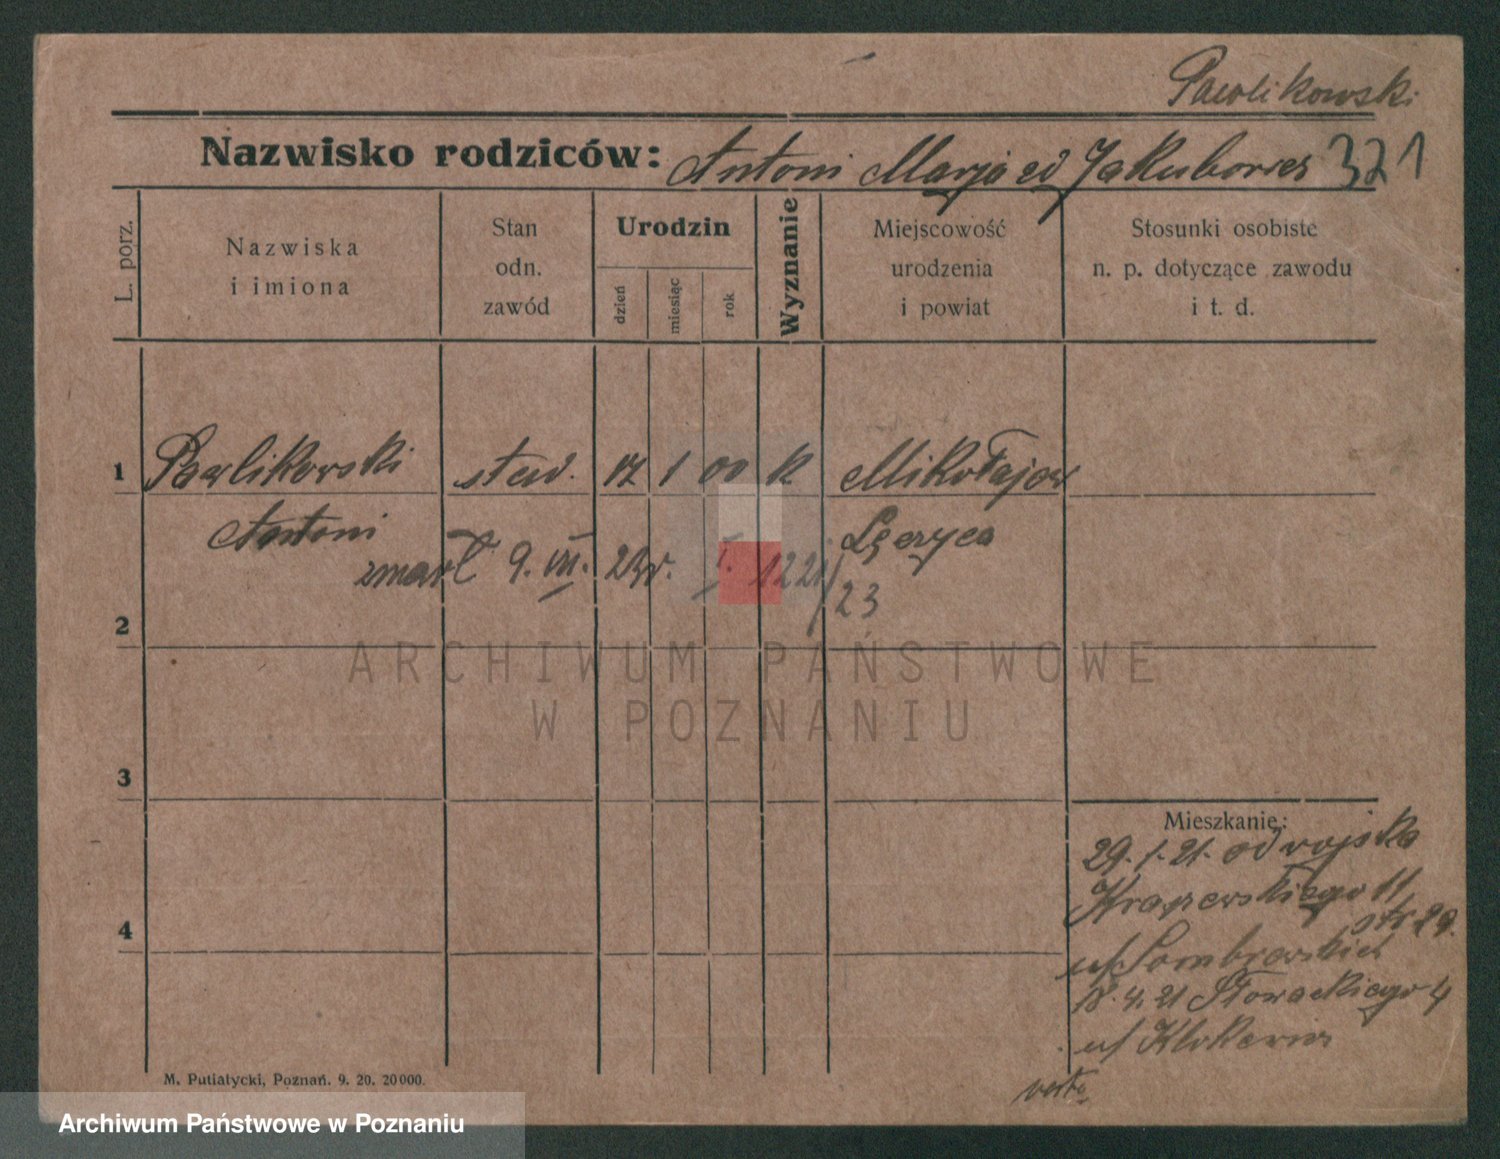 Pawlikowski
Nazwisko rodziców: Antoni Marja zd Jakubowicz 321
L. porz.
Nazwiska
i imiona
Stan
odn.
zawód
Urodzin
dzień
miesiąc
rok
Wyznanie
Miejscowość
urodzenia
i powiat
Stosunki osobiste
n. p. dotyczące zawodu
i t. d.
1 Pawlikowski stud. 17 1 00 k Mikołajew
Antoni Łęczyca
zmarł 9. VII. 23r.
23
2
ARCHIWUM PAŃSTWOWE
W POZNANIU
3
Mieszkanie:
29.1.21. od wojska
Kraszewskiego 11
str 29.
4
u/ Dombrowskich
18.4.21 Słowackiego 4
u/
verte
M. Putiatycki, Poznań. 9. 20. 20 000.
Archiwum Państwowe w Poznaniu